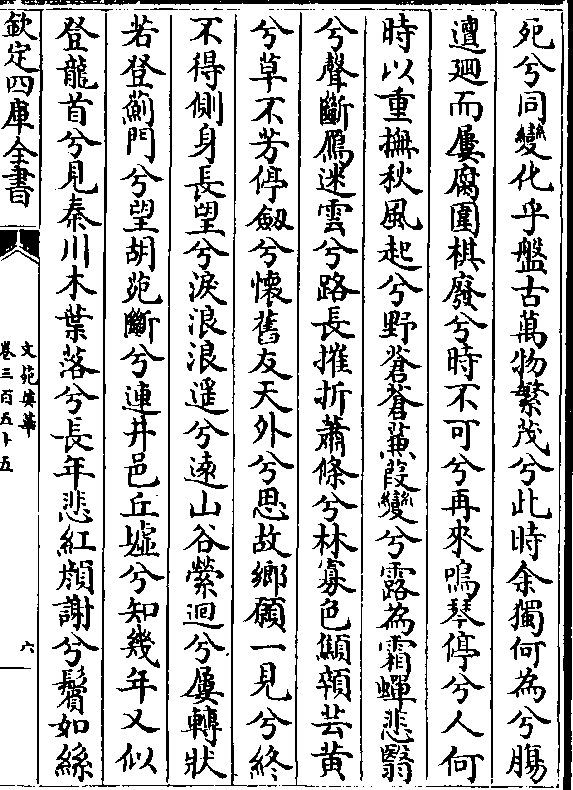 死兮同變化乎盤古萬物繁茂兮此時余獨何為兮腸
邅廻而屢腐圍棋廢兮時不可兮再來鳴琴停兮人何
時以重撫秋風起兮野蒼蒼蒹葭變兮露為霜蟬悲翳
兮聲斷鴈迷雲兮路長摧折蕭條兮林寡色顦顇芸黄
兮草不芳停劔兮懷舊友天外兮思故鄉願一見兮終
不得側身長望兮淚浪浪遥兮遠山谷縈迴兮屢轉狀
若登薊門兮望胡苑斷兮連井邑丘墟兮知幾年又似
登龍首兮見秦川木葉落兮長年悲紅顔謝兮鬢如絲
欽定四庫全書
文苑英華
卷三百五十五
六